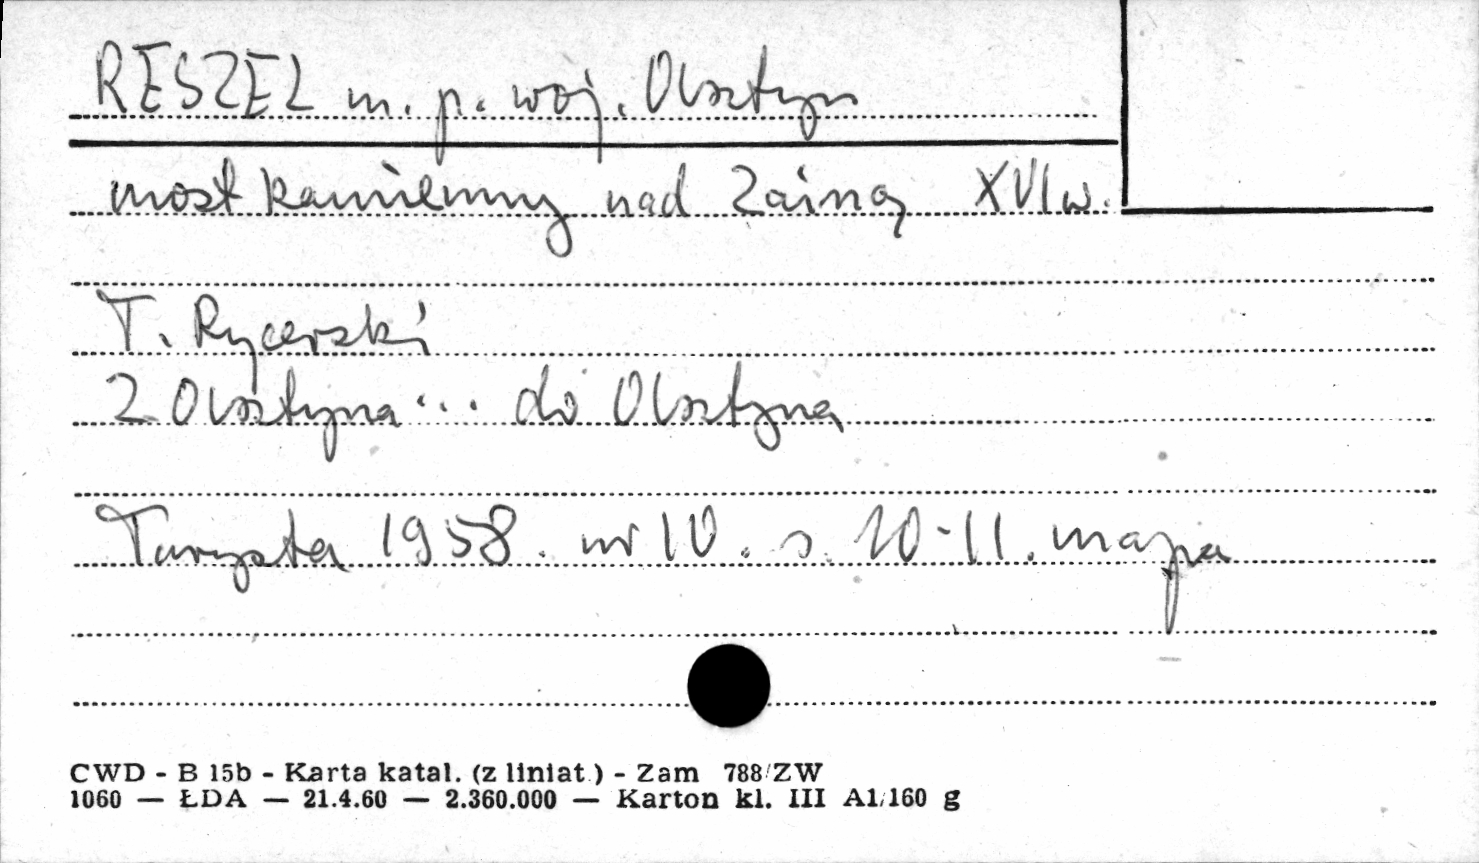 RESZEL m. p. woj. Olsztyn
most kamienny nad Zainą XVI w.
T. Rycerski
Z Olsztyna ... do Olsztyna
Turysta 1958. nr 10. s. 10-11. mapa
CWD - B 15b - Karta katal. (z liniat.) - Zam 788/ZW
1060 — ŁDA — 21.4.60 — 2.360.000 — Karton kl. III A1/160 g